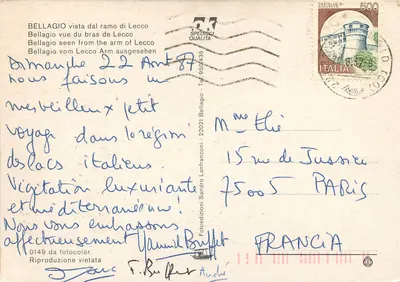 BELLAGIO vista dal ramo di Lecco
Bellagio vue du bras de Lecco
Bellagio seen from the arm of Lecco
Bellagio vom Lecco Arm ausgesehen
Dimanche 22 Aout 87
nous faisons un
merveilleux petit
voyage dans la région
des lacs italiens.
Végétation luxuriante
et méditerranéenne!
Nous vous embrassons
affectueusement Yannick Buffet
F. Buffet André
0149 da fotocolor
Riproduzione vietata
Fotoedizioni Sandro Lanfranconi - 22021 Bellagio - Tel.
SPEDIRE
QUALITÀ
500
ITALIA
Mme Thié
15 rue de Jussieu
75005 PARIS
FRANCIA